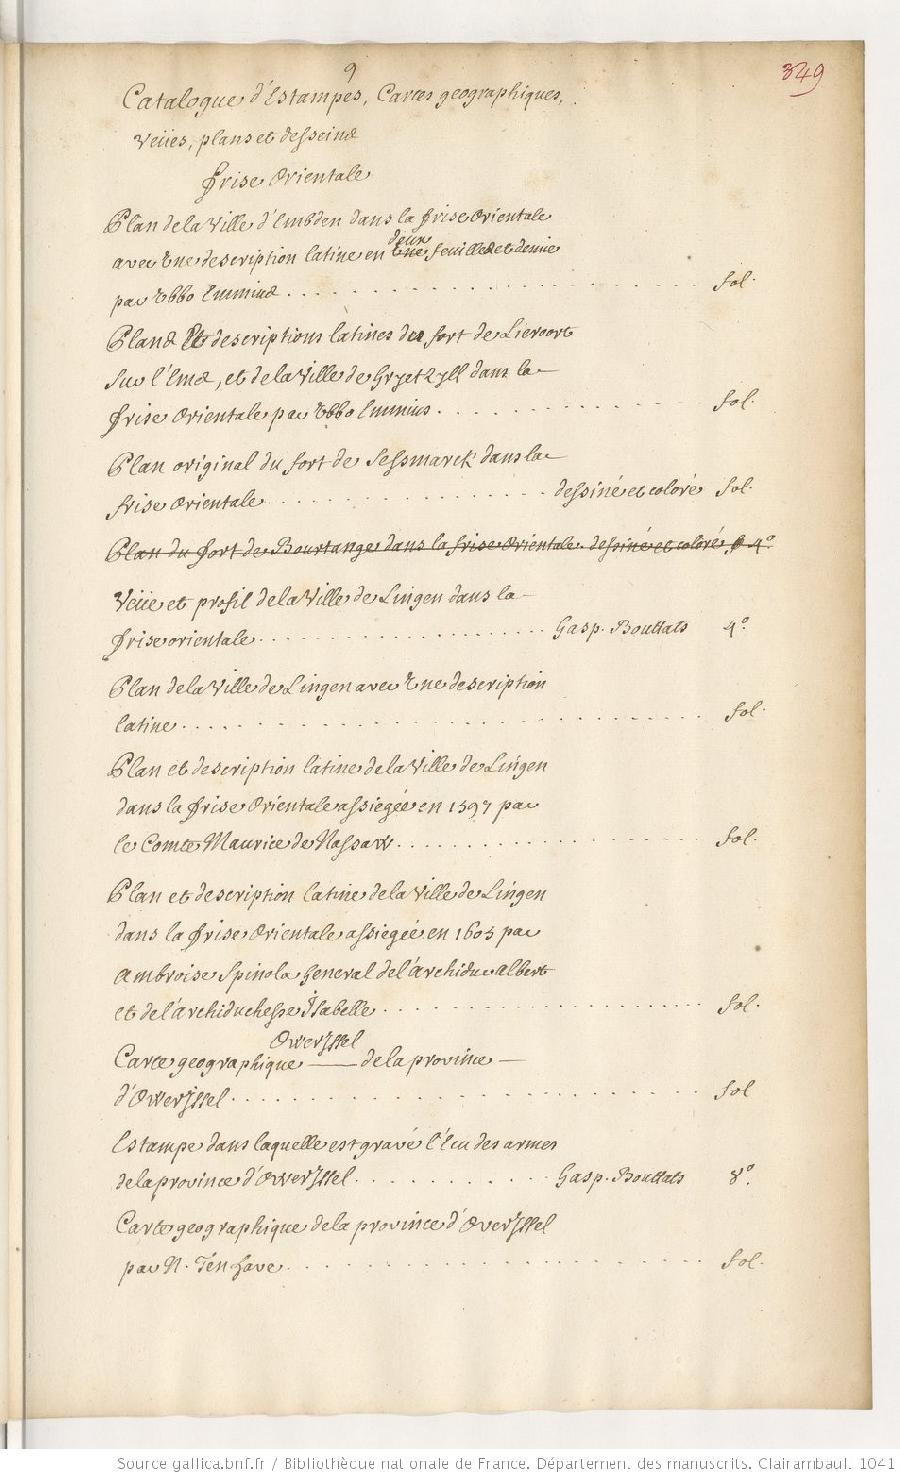 9
349
Catalogue d'Estampes, Cartes geographiques,
Veües, plans et desseins
frise Orientale
Plan de la Ville d'Embden dans la frise Orientale
deux
avec Une description latine en Une feuilles et demie
par Ubbo Emmius . . . . . . . . fol.
Plans Et descriptions latines du fort de Lieroort
sur l'Ems, et de la Ville de Gryetzyll dans la
frise Orientale par Ubbo Emmius . . . . . . . . fol.
Plan original du fort de Jessmarck dans la
frise Orientale . . . . . . . . dessiné et coloré fol.
Plan du fort de Bourtange dans la frise Orientale. dessiné et coloré 4º
Veüe et profil de la Ville de Lingen dans la
frise orientale . . . . . . . . Gasp. Bouttats 4º.
Plan de la Ville de Lingen avec Une description
latine . . . . . . . . fol.
Plan et description latine de la Ville de Lingen
dans la frise Orientale assiegée en 1597 par
le Comte Maurice de Nassaw . . . . . . . . fol.
Plan et description latine de la Ville de Lingen
dans la frise Orientale assiegée en 1605 par
ambroise Spinola General de l'archiduc albert
et de l'archiduchesse Isabelle . . . . . . . . fol.
OwerJssel
Carte geographique — de la province —
d'OwerJssel . . . . . . . . fol
Estampe dans laquelle est gravé l'Ecu des armes
de la province d'OwerJssel . . . . . . . . Gasp. Bouttats 8º.
Carte geographique de la province d'OverJssel
par N. Ten have . . . . . . . . fol.
Source gallica.bnf.fr / Bibliothèque nationale de France. Département des manuscrits. Clairambault. 1041